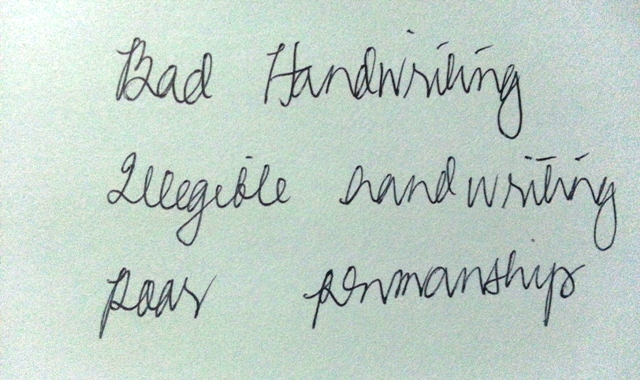 Bad Handwriting
Illegible handwriting
poor penmanship